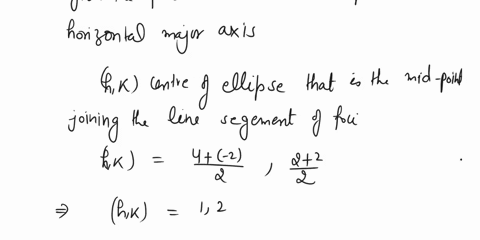 horizontal major axis
(h,K) centre of ellipse that is the mid-point
joining the line segement of foci
(h,K) = 4+(-2)/2 , 2+2/2
⇒ (h,K) = 1, 2